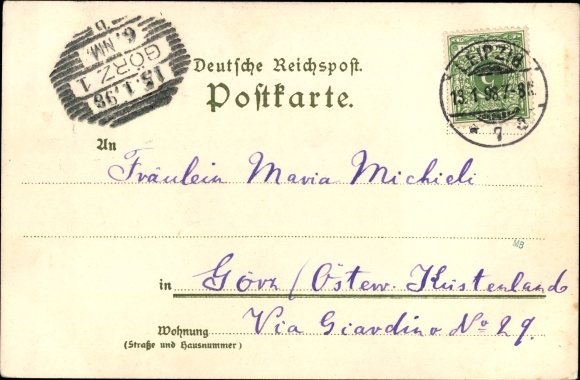 15.1.98
GÖRZ 1
6. NM.
Deutsche Reichspost.
Postkarte.
LEIPZIG
13.1.98.7-8N.
* 7
An
Fräulein Maria Michieli
MB
in Görz (Österr. Küstenland
Wohnung Via Giardino No 29.
(Straße und Hausnummer)